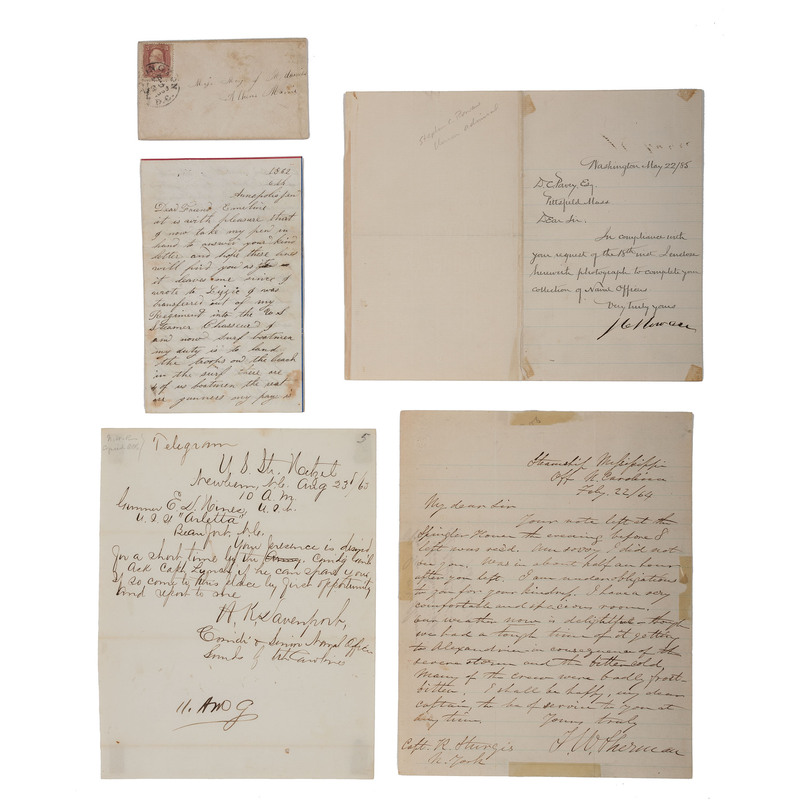 D.C.
Albion Maine
1862
Annapolis
Dear Friend Emeline
it is with pleasure that
I now take my pen in
hand to answer your kind
letter and hope these lines
will find you as
it leaves me since I
wrote to Lizzie I was
transferred out of my
Regiment into the
Steamer Chasseur I
am now surf boatman
my duty is to land
the troops on the beach
in the surf there are
of us boatmen the rest
are gunners my pay is
Stephen C. Rowan
Admiral
Washington May 22/85
D. C. Esq.
Pittsfield Mass
Dear Sir:
In compliance with
your request of the 18th inst I enclose
herewith photograph to complete your
collection of Naval Officers
Very truly yours
S C Rowan
Telegram
5
U. S. Str. Hetzel
Newbern, N.C. Aug 23d / 63
10 A.M.
Gunner E. D. Hines, U.S.N.
U.S.S "Arletta"
Beaufort, N.C.
Your presence is desired
for a short time by the
Ask Capt Lynch if he can spare you,
If so come to this place by first opportunity
and report to me
H. K. Davenport,
Comdr & Senior Naval Officer
Sounds of N. Carolina
Steamship Mississippi
Off N. Carolina
Feby. 22/64
My dear Sir
Your note left at the
House the evening before I
left was recd. Am sorry I did not
see you. Was in about half an hour
after you left. I am under obligations
to you for your kindness. I have a very
comfortable and spacious room.
Our weather now is delightful - though
we had a tough time of it getting
to Alexandria in consequence of the
severe storm and the bitter cold,
Many of the crew were badly frost-
bitten. I shall be happy, my dear
captain, to be of service to you at
any time
Yours truly
T. W. Sherman
Capt. R. Sturgis
N. York